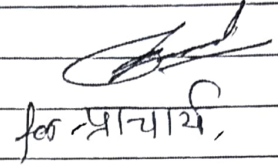 for प्राचार्य,